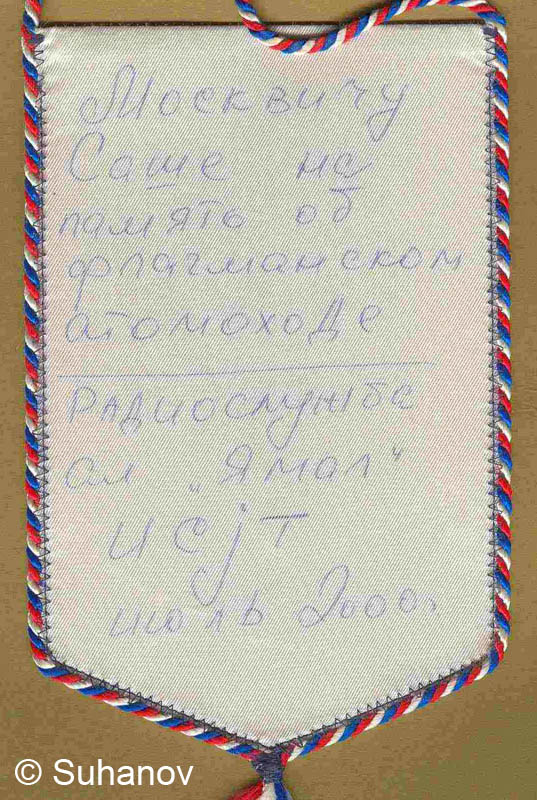 Москвичу
Саше на
память об
флагманском
атомоходе
Радиослужба
ал „Ямал"
UCJT
июль 2000г
© Suhanov